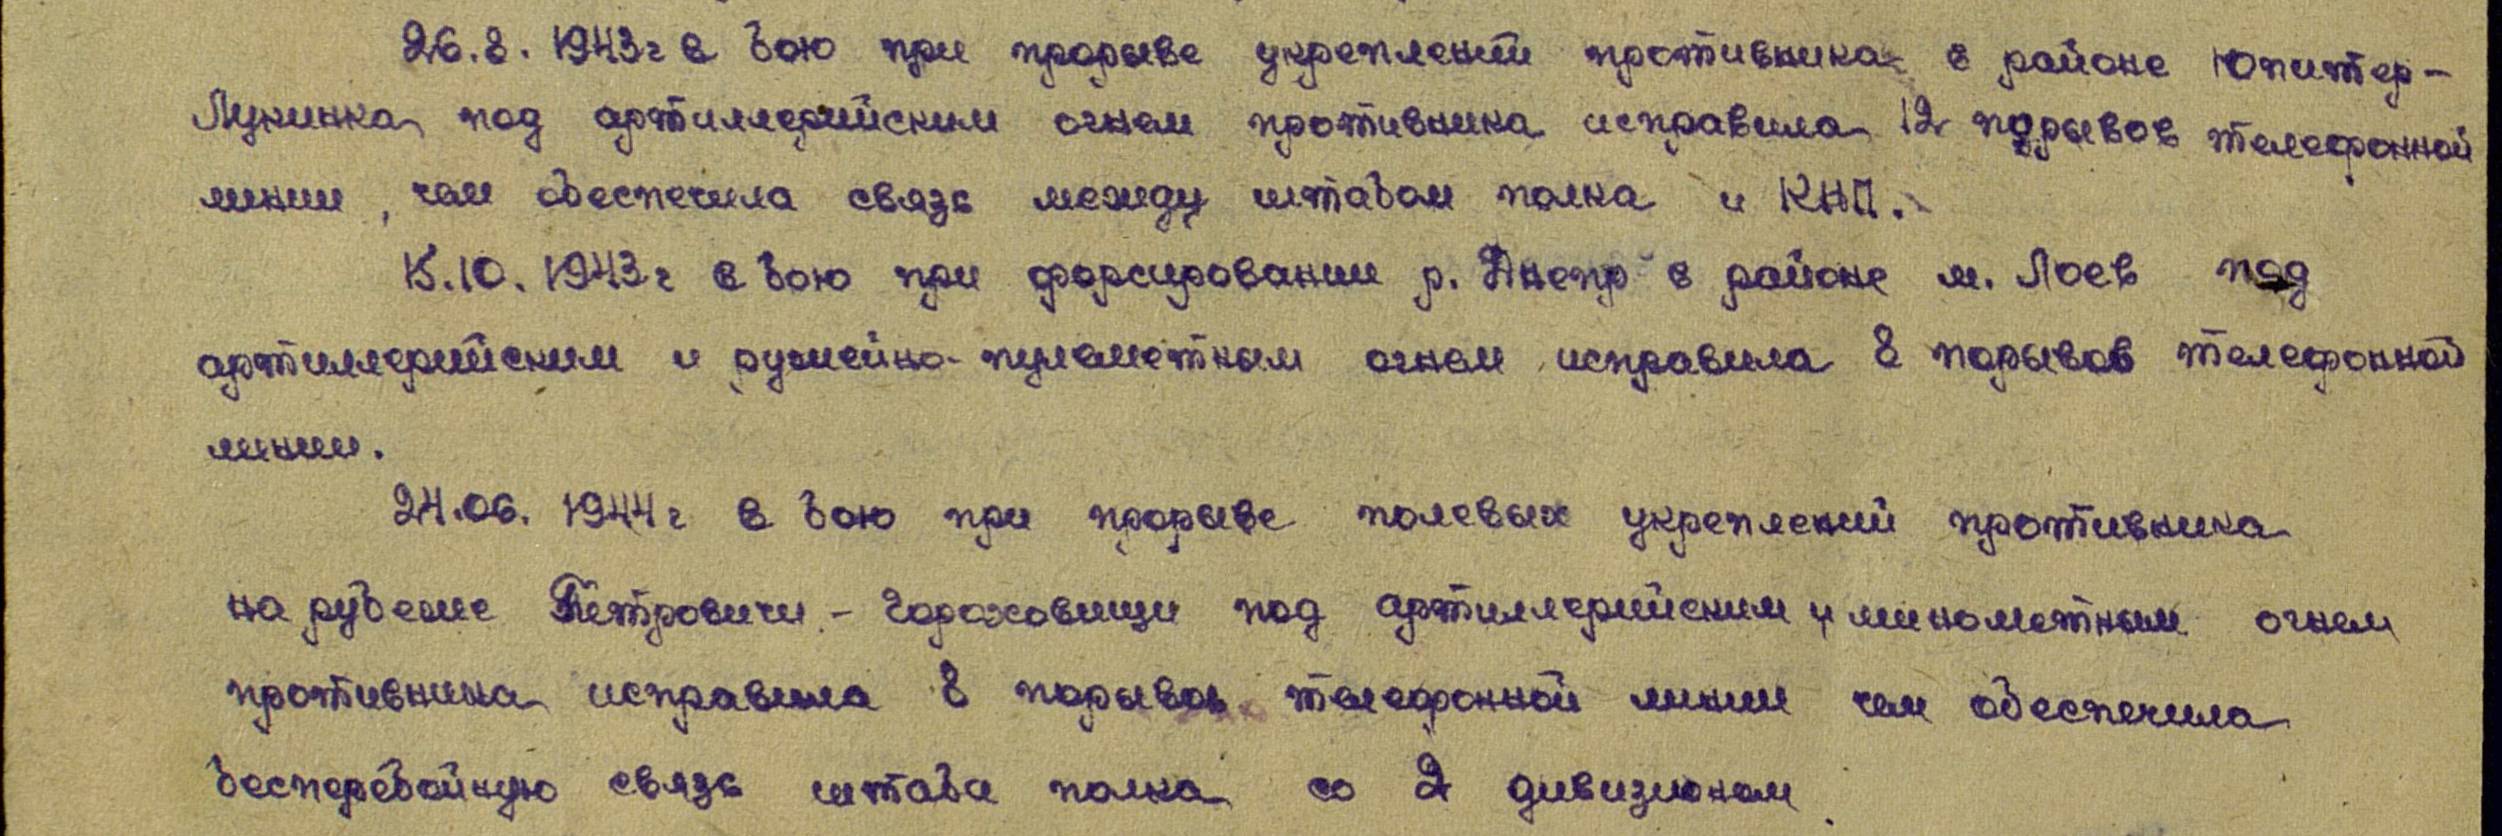 26.8. 1943г в бою при прорыве укреплений противника в районе Юпитер-
Лукинка под артиллерийским огнем противника исправила 12 порывов телефонной
линии, чем обеспечила связь между штабом полка и КНП.
15.10. 1943г в бою при форсировании р. Днепр в районе м. Лоев под
артиллерийским и ружейно-пулеметным огнем исправила 8 порывов телефонной
линии.
24.06. 1944г в бою при прорыве полевых укреплений противника
на рубеже Петровичи - Гороховищи под артиллерийским и минометным огнем
противника исправила 8 порывов телефонной линии чем обеспечила
бесперебойную связь штаба полка со 2 дивизионом